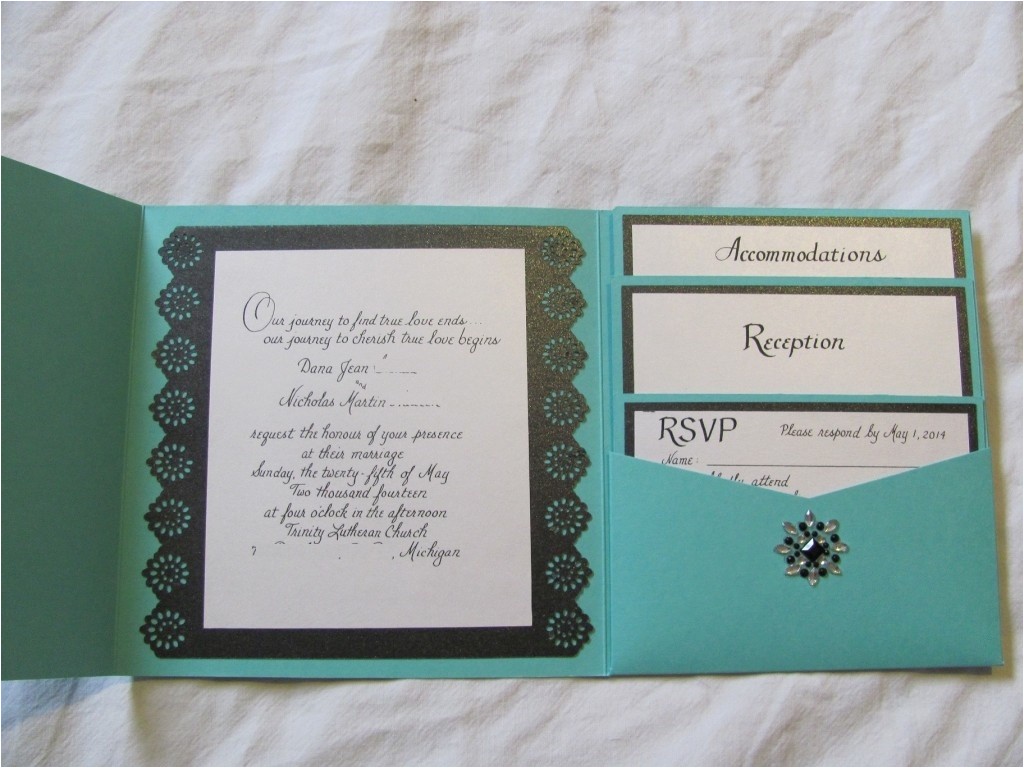 Our journey to find true love ends...
our journey to cherish true love begins
Dana Jean
and
Nicholas Martin
request the honour of your presence
at their marriage
Sunday, the twenty-fifth of May
Two thousand fourteen
at four o'clock in the afternoon
Trinity Lutheran Church
, Michigan
Accommodations
Reception
RSVP Please respond by May 1, 2014
Name:
attend